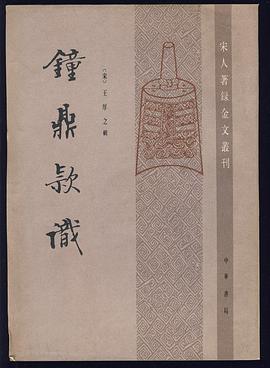 宋人著録金文叢刊
中華書局
(宋)王厚之輯
鐘鼎款識